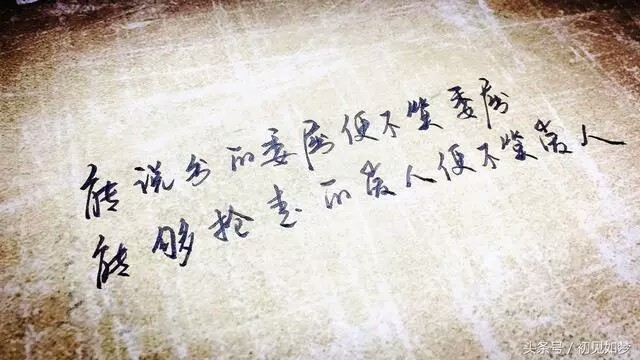 能说出的委屈便不算委屈
能够抢走的爱人便不算爱人
头条号/初见如梦